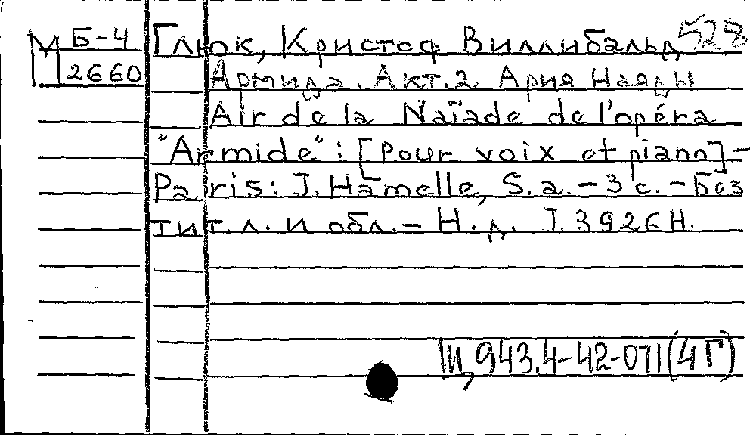 М Б-4 Глюк, Кристоф Виллибальд 528
2660 Армида. Акт.2. Ария Наяды
Air de la Naïade de l'opéra
"Armide": [Pour voix et piano] -
Paris: J. Hamelle, S.a. - 3 с. - Без
тит.л. и обл. - Н.д. J.3926H.
Щ943.4-42-071(4Г)